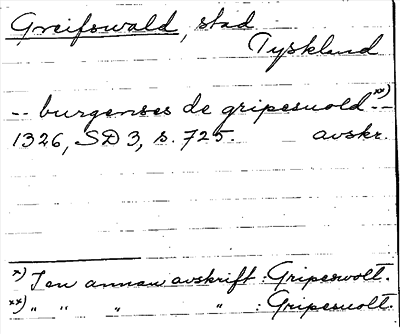 Greifswald, stad
Tyskland
-- burgenses de gripesuold xx) --
1326, SD 3, s. 725. avskr.
x) I en annan avskrift: Gripeswolt.
xx) " " " " : Gripesuolt.